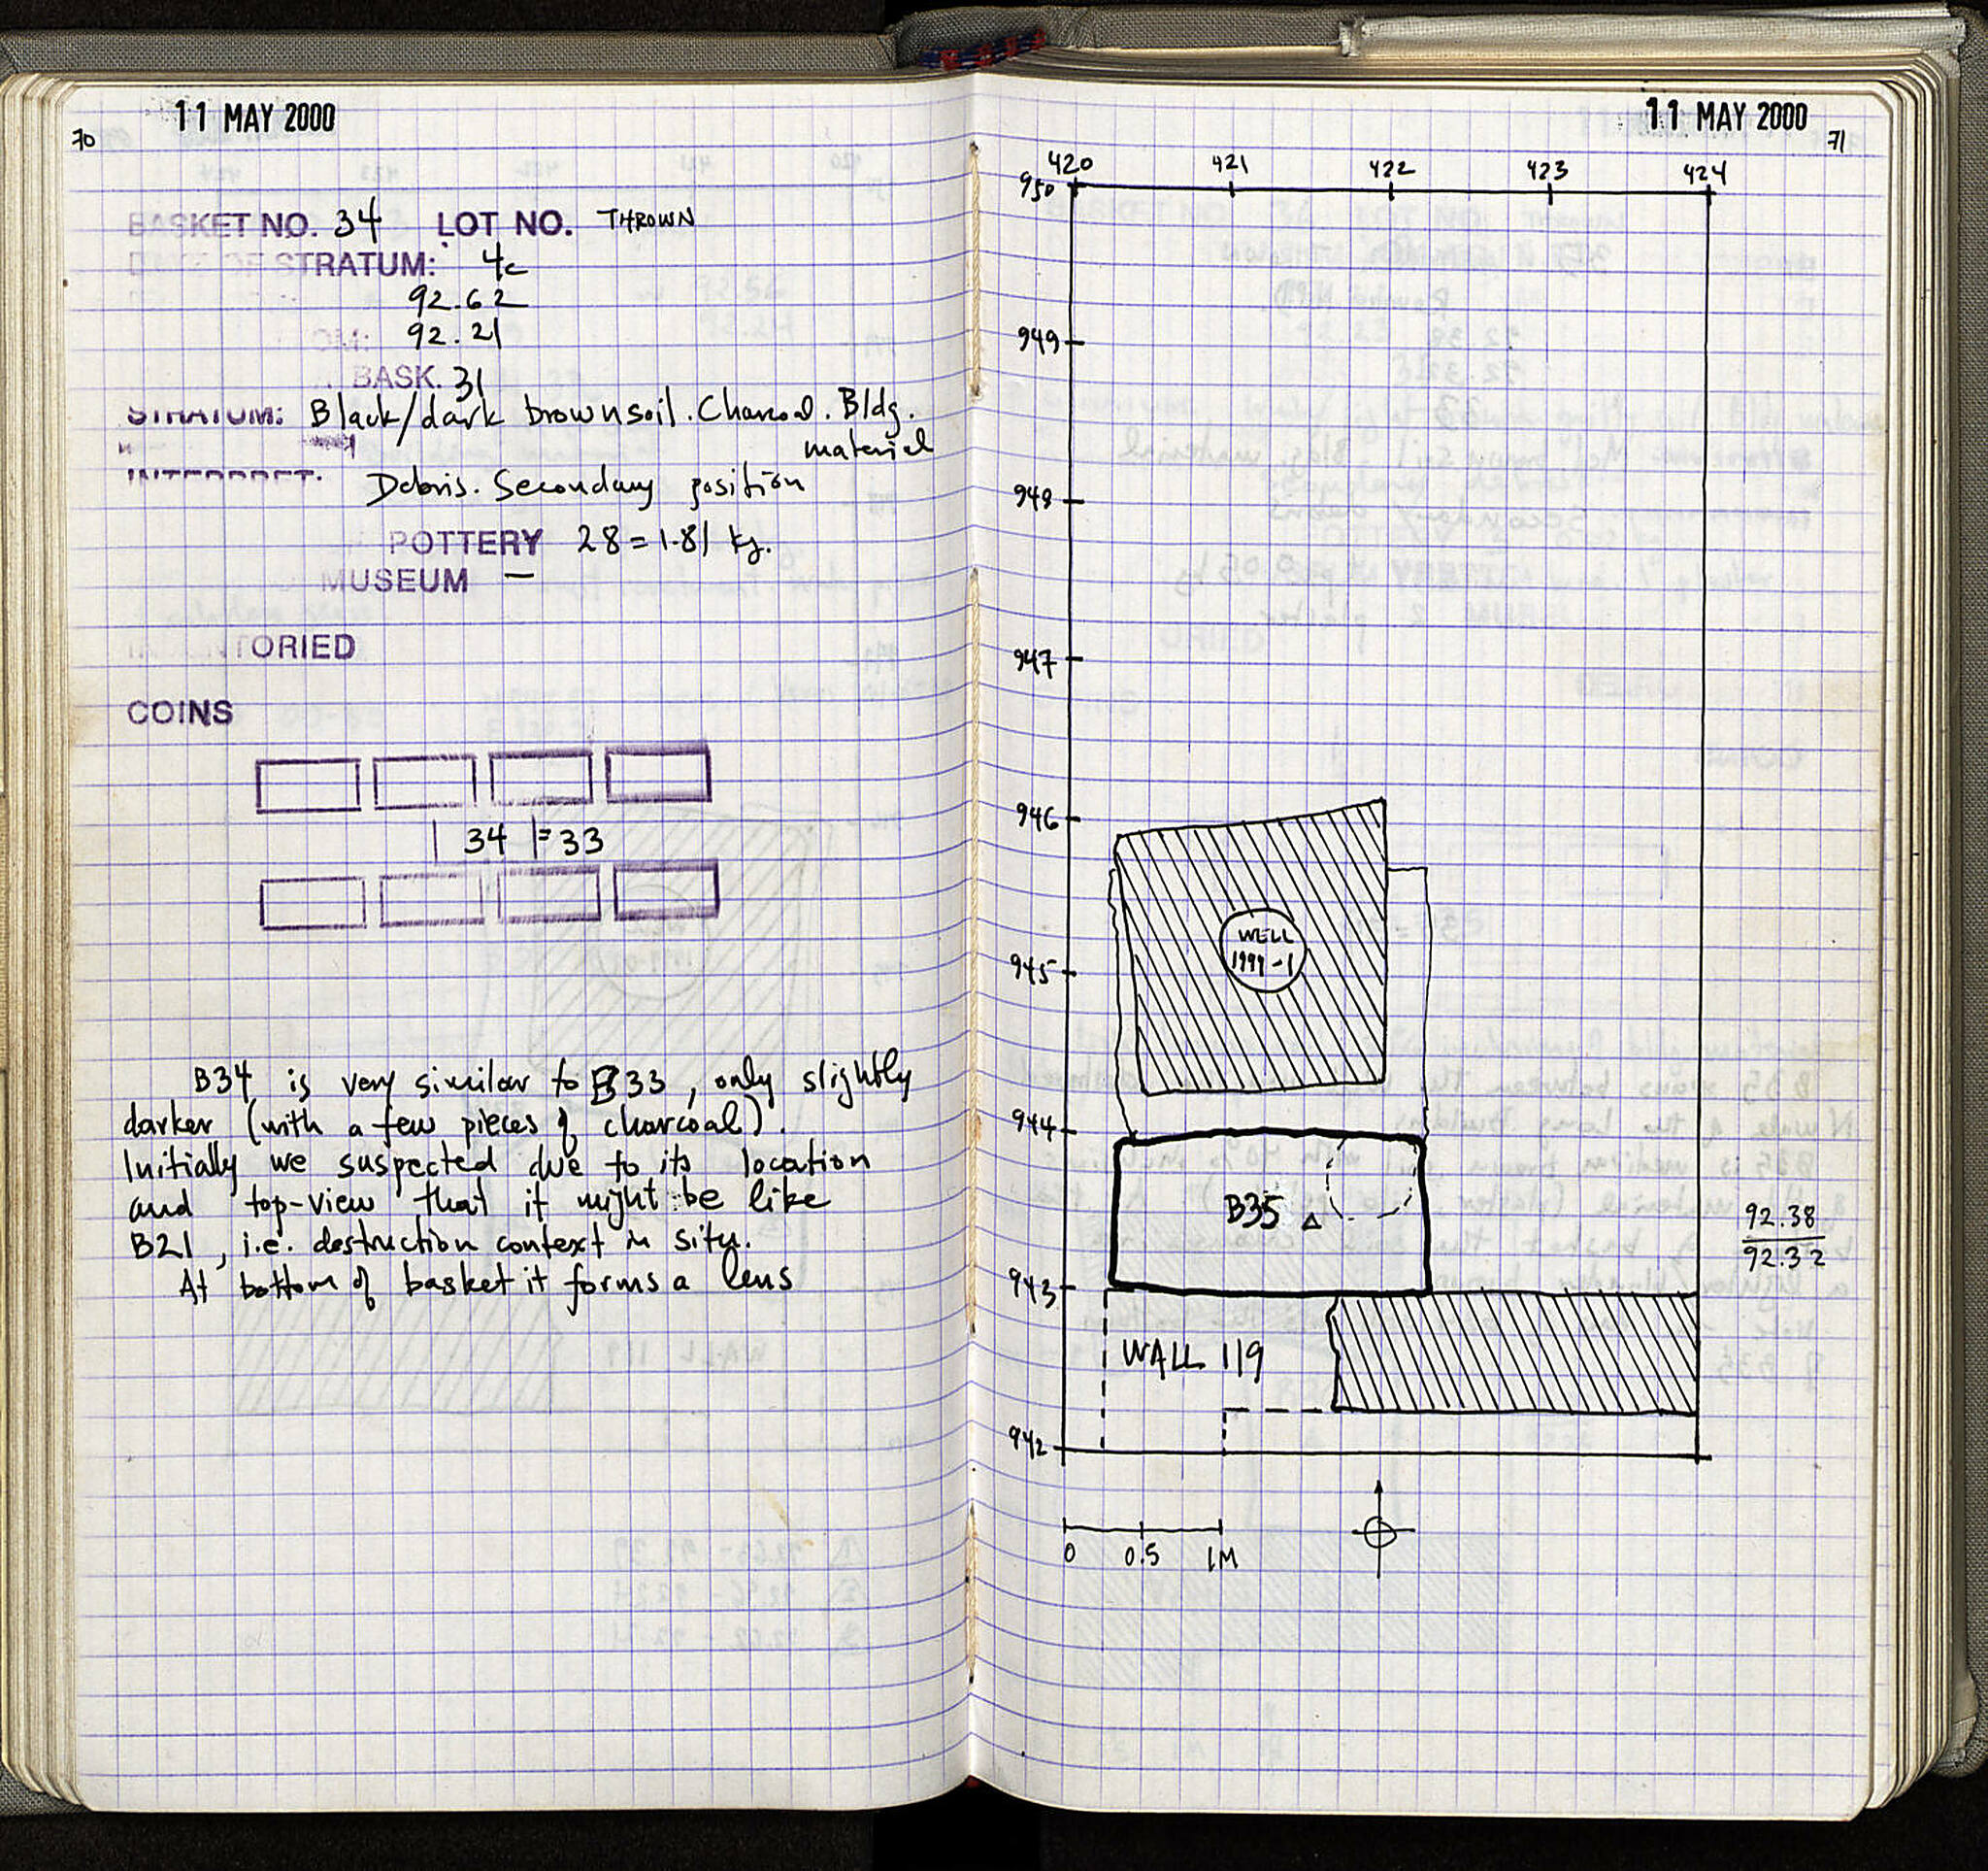 11 MAY 2000
70
BASKET NO. 34 LOT NO. THROWN
DATE OF STRATUM: 4c
92.62
OM: 92.21
BASK. 31
STRATUM: Black/dark brown soil. Charcoal. Bldg.
material
INTERPRET. Debris. Secondary position
POTTERY 28 = 1.81 kg.
MUSEUM —
INVENTORIED
COINS
34 = 33
B34 is very similar to B33, only slightly
darker (with a few pieces of charcoal).
Initially we suspected due to its location
and top-view that it might be like
B21, i.e. destruction context in situ.
At bottom of basket it forms a lens
11 MAY 2000
71
420 421 422 423 424
950
949
948
947
946
WELL
1999-1
945
944
B35
92.38
92.32
943
WALL 119
942
0 0.5 1M